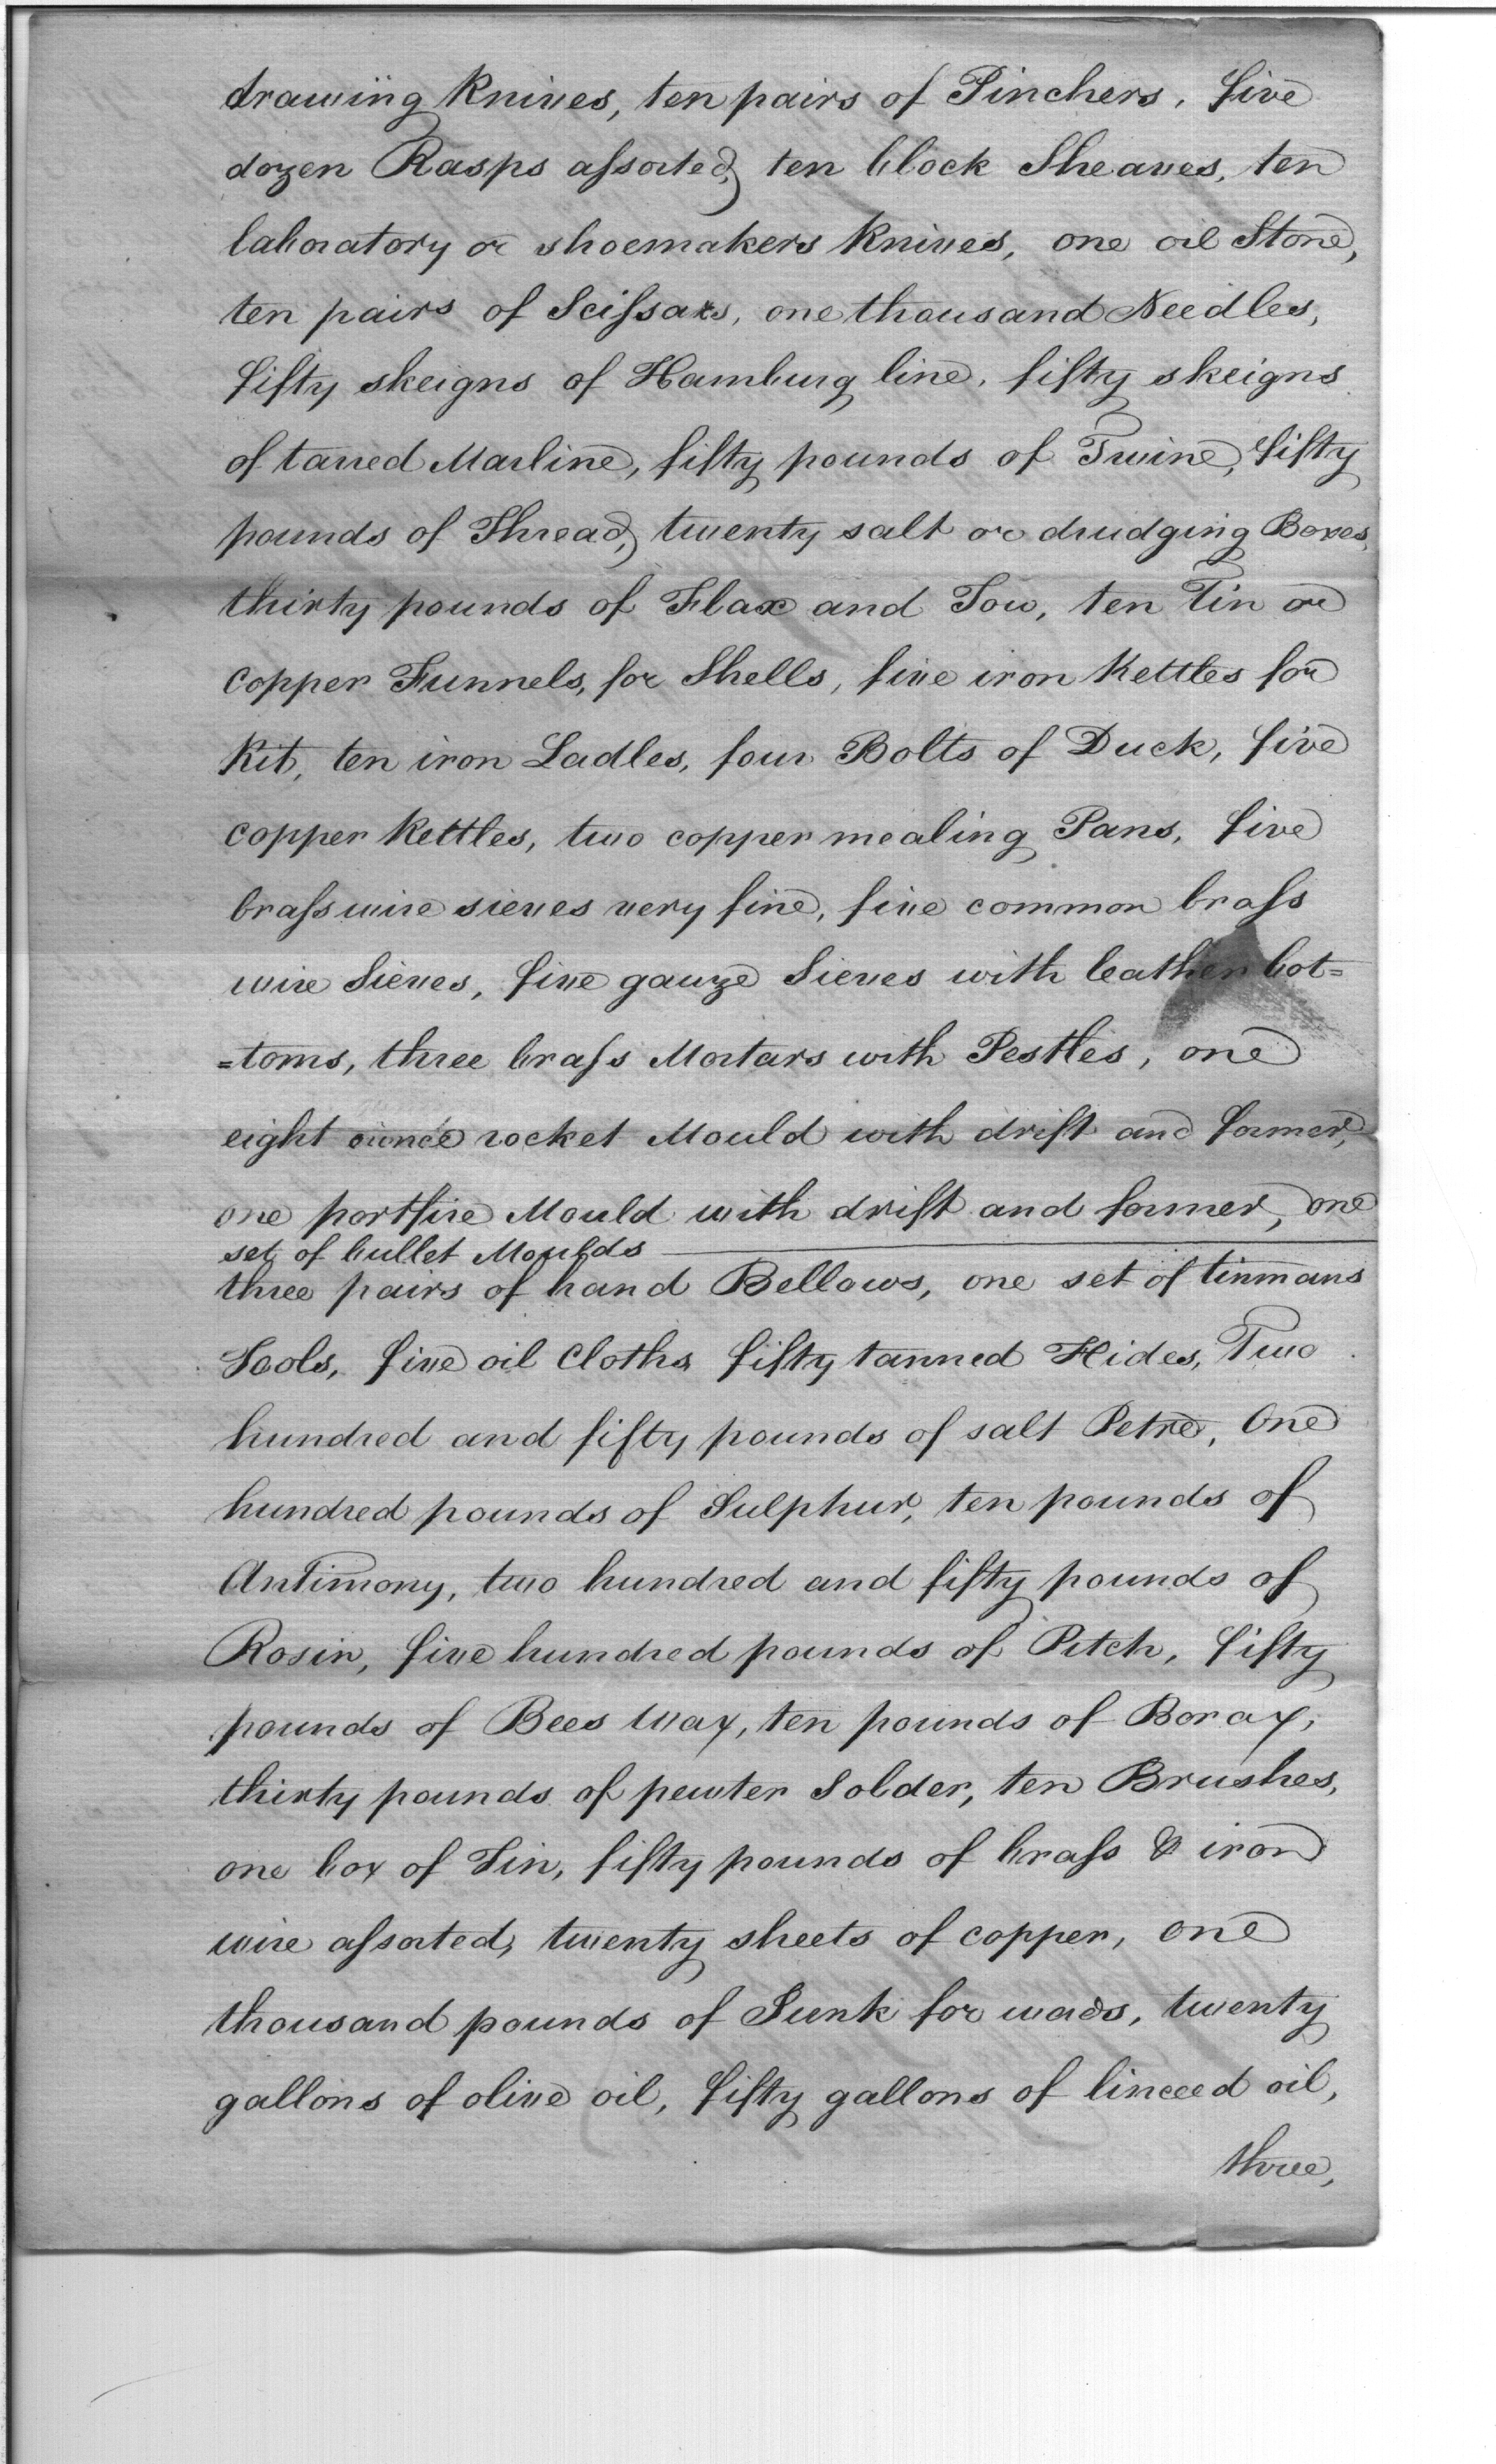 drawing knives, ten pairs of Pinchers, five
dozen Rasps assorted, ten block Sheaves, ten
laboratory or shoemakers knives, one oil Stone,
ten pairs of Scissars, one thousand Needles,
fifty skeigns of Hamburg line, fifty skeigns
of tarred Marline, fifty pounds of Twine, fifty
pounds of Thread, twenty salt or drudging Boxes,
thirty pounds of Flax and Tow, ten Tin or
copper Funnels, for Shells, five iron kettles for
Kit, ten iron Ladles, four Bolts of Duck, five
copper kettles, two copper mealing Pans, five
brass wire sieves very fine, five common brass
wire Sieves, five gauze Sieves with leather bot=
=toms, three brass Mortars with Pestles, one
eight ounce rocket Mould with drift and former,
one portfire Mould with drift and former, one
set of bullet Moulds
three pairs of hand Bellows, one set of tinmans
Tools, five oil Cloths, fifty tanned Hides, Two
hundred and fifty pounds of salt Petre, One
hundred pounds of Sulphur, ten pounds of
Antimony, two hundred and fifty pounds of
Rosin, five hundred pounds of Pitch, fifty
pounds of Bees Wax, ten pounds of Borax,
thirty pounds of pewter Solder, ten Brushes,
one box of Tin, fifty pounds of brass & iron
wire assorted, twenty sheets of copper, one
thousand pounds of Junk for wads, twenty
gallons of olive oil, fifty gallons of linceed oil,
three,